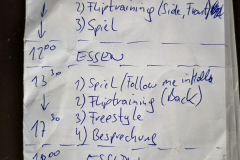 2) Fliptraining (Side, Front)
3) Spiel
12⁰⁰ ESSEN
13³⁰ 1) Spiel / Follow me
2) Fliptraining (Back)
3) Freestyle
17³⁰ 4) Besprechung
ESSEN